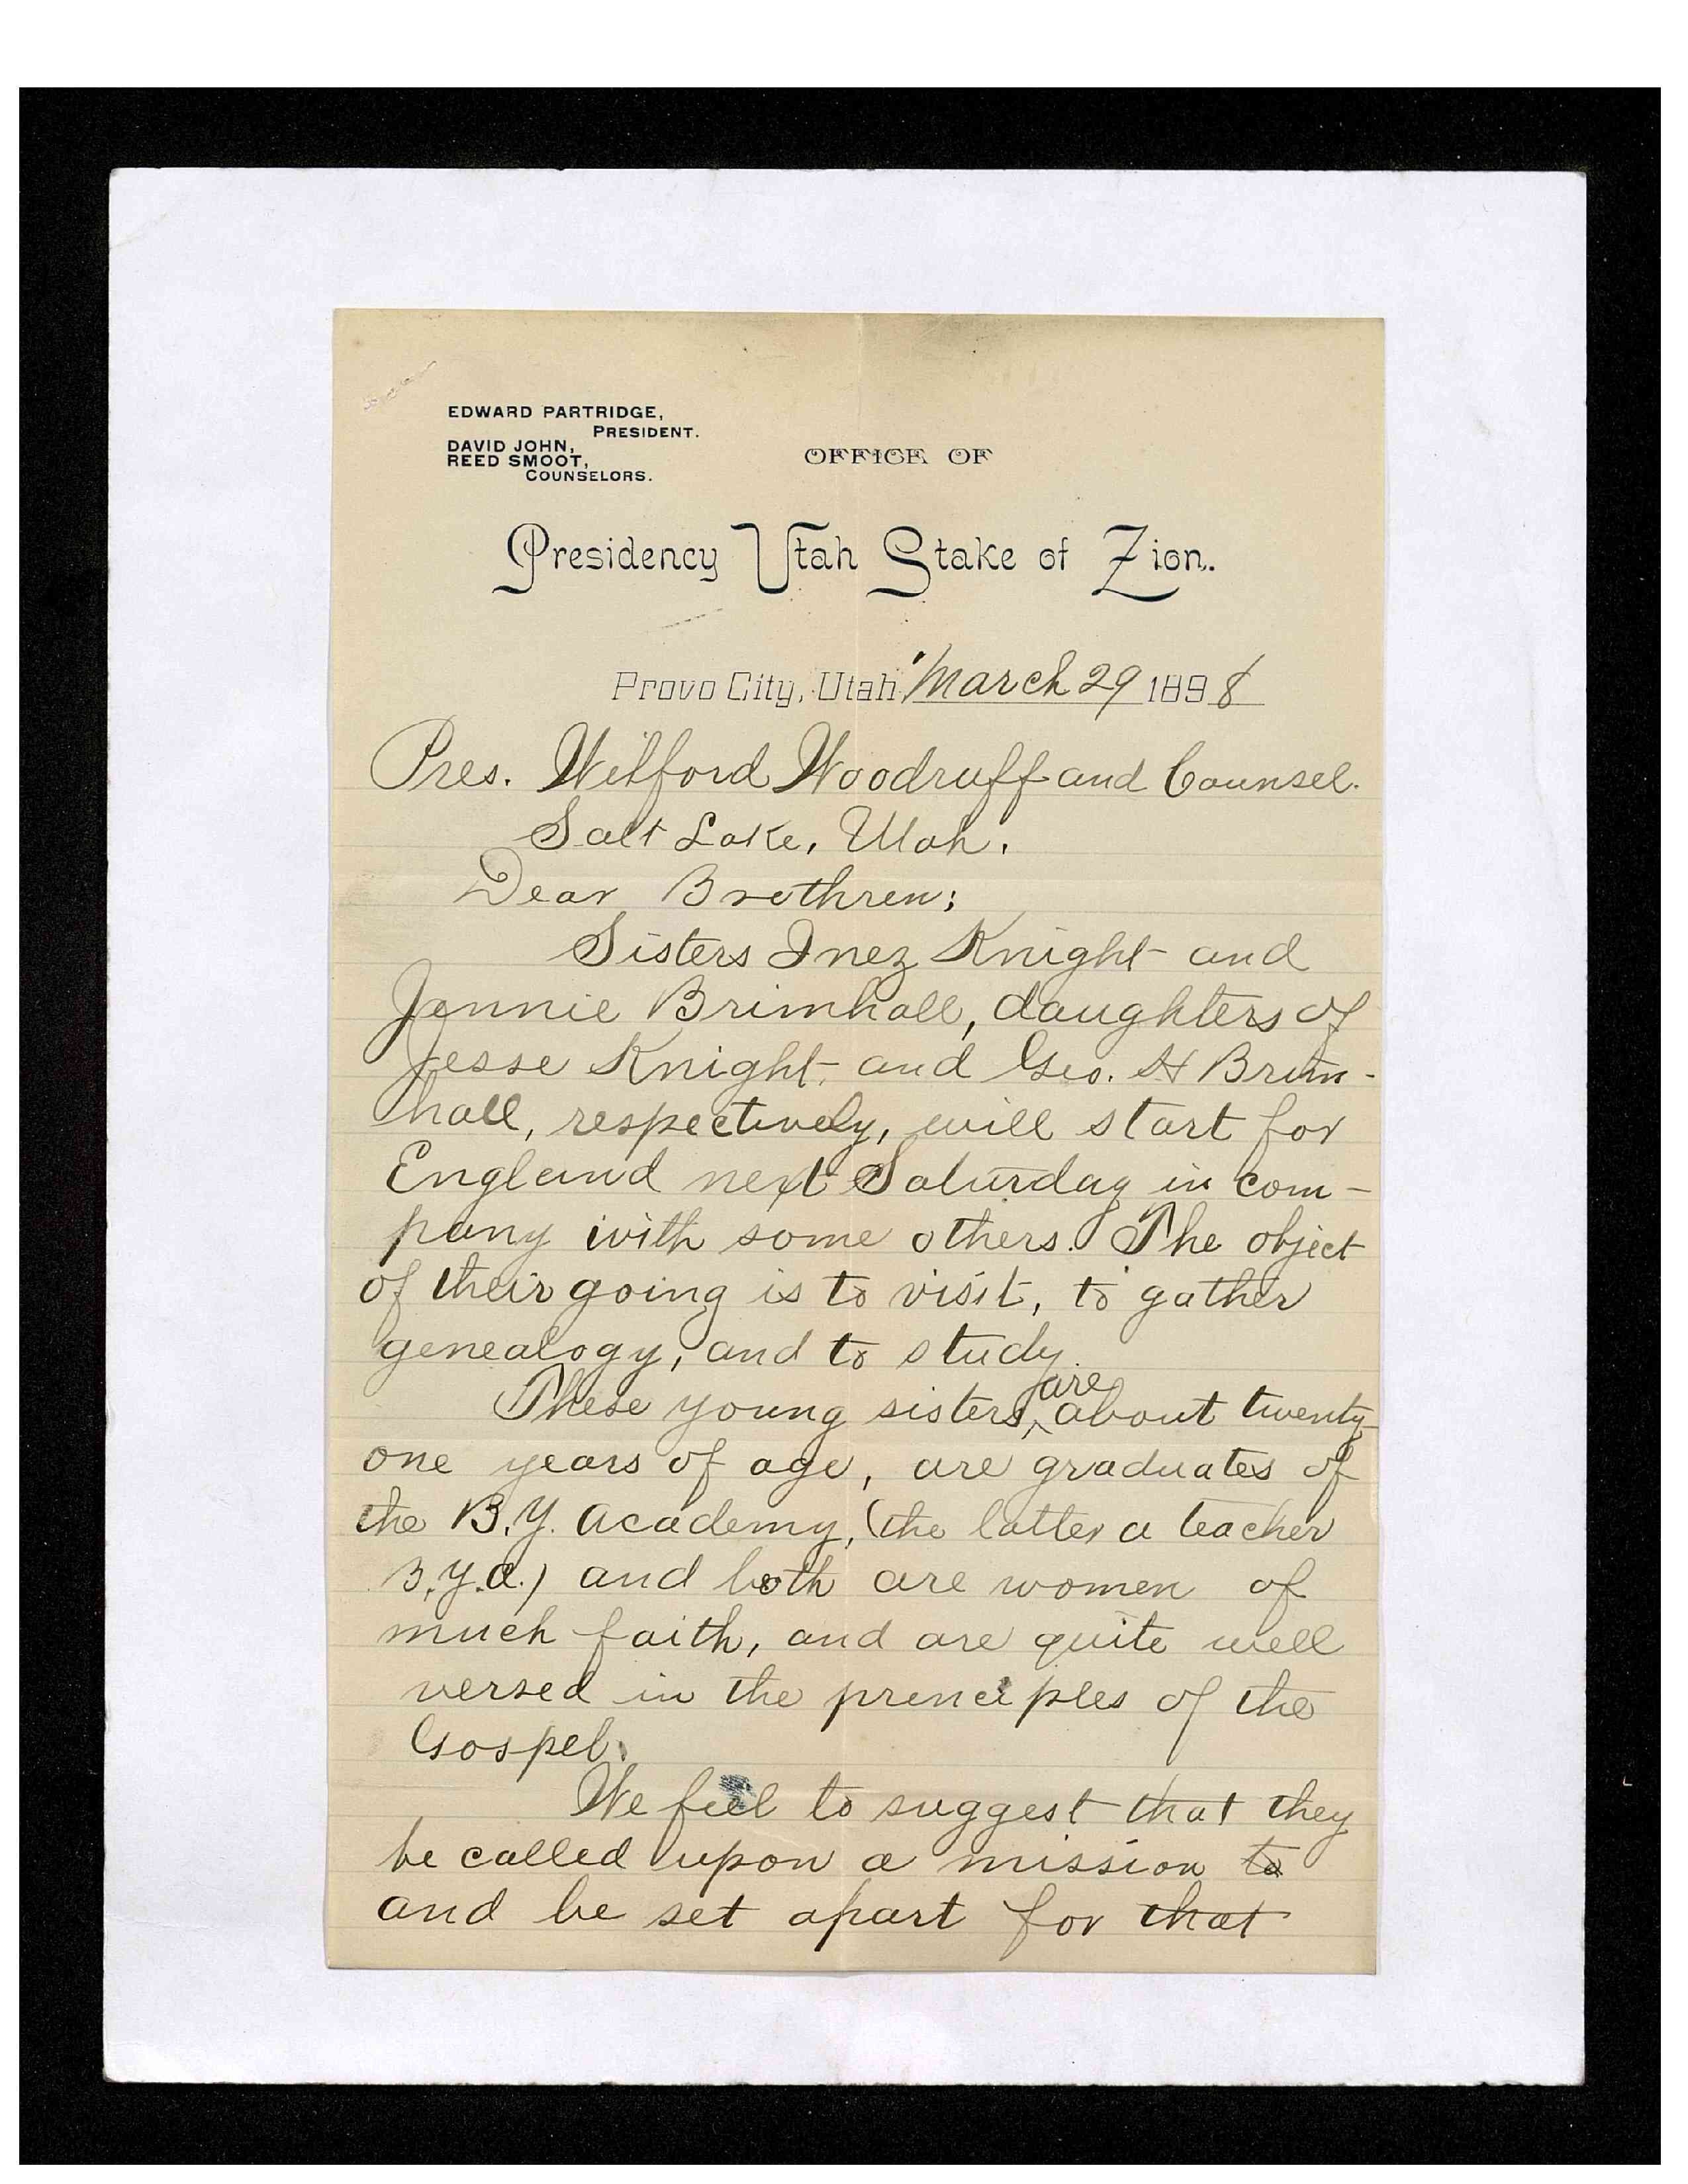 EDWARD PARTRIDGE,
PRESIDENT.
DAVID JOHN,
REED SMOOT,
COUNSELORS.
OFFICE OF
Presidency Utah Stake of Zion.
Provo City, Utah March 29 1898
Pres. Wilford Woodruff and Counsel.
Salt Lake, Utah.
Dear Brethren;
Sisters Inez Knight and
Jennie Brimhall, daughters of
Jesse Knight and Geo. H Brim-
hall, respectively, will start for
England next Saturday in com-
pany with some others. The object
of their going is to visit, to gather
genealogy, and to study.
are
These young sisters, about twenty-
one years of age, are graduates of
the B.Y. Academy, (the latter a teacher
B.Y.A.) and both are women of
much faith, and are quite well
versed in the principles of the
Gospel.
We feel to suggest that they
be called upon a mission to
and be set apart for that